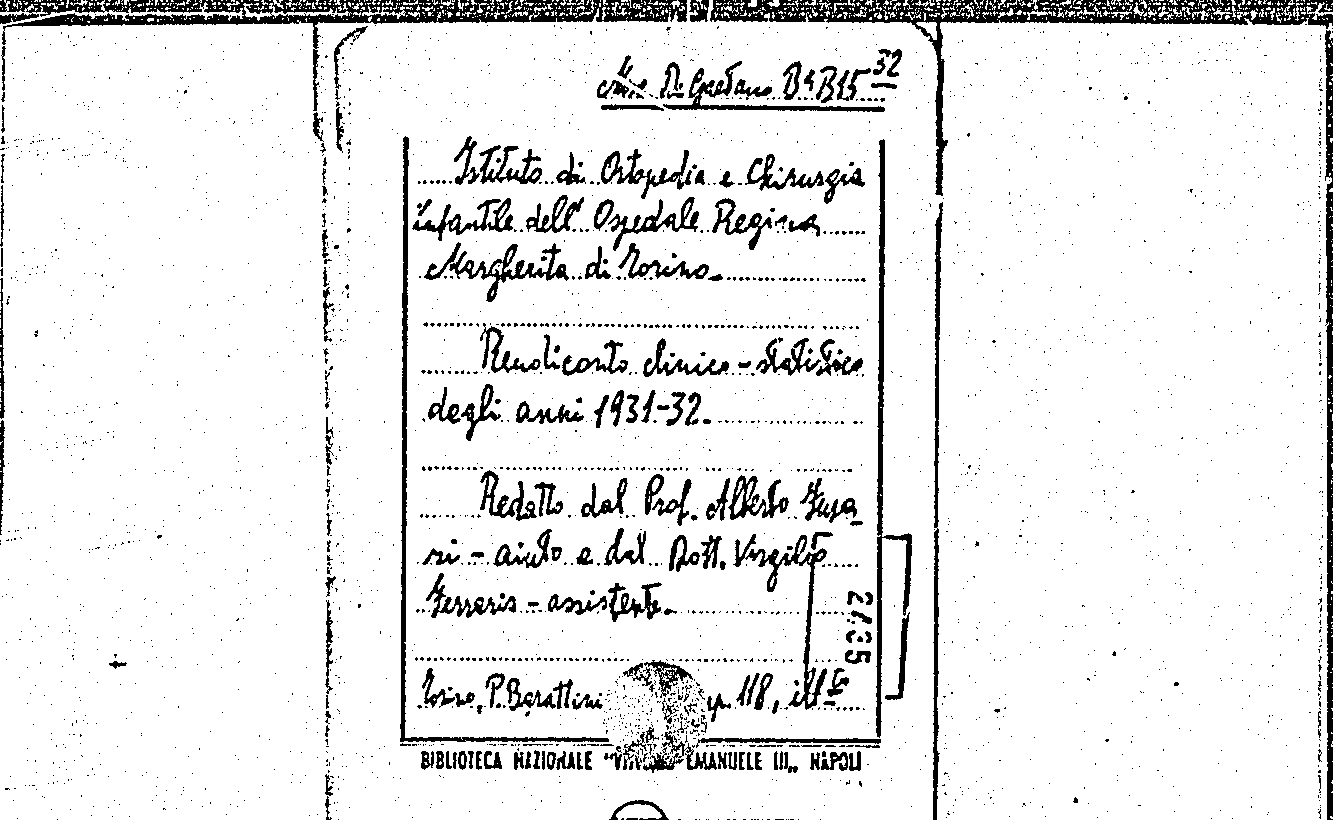 Di Gaetano B⁴ B15 32
Istituto di Ortopedia e Chirurgia
infantile dell' Ospedale Regina
Margherita di Torino.
Rendiconto clinico - statistico
degli anni 1931-32.
Redatto dal Prof. Alberto Fusa-
ri - aiuto e dal Dott. Virgilio
Ferraris - assistente.
2435
Torino, P. Barattini p. 118, ill.
BIBLIOTECA NAZIONALE "VITTORIO EMANUELE III„ NAPOLI